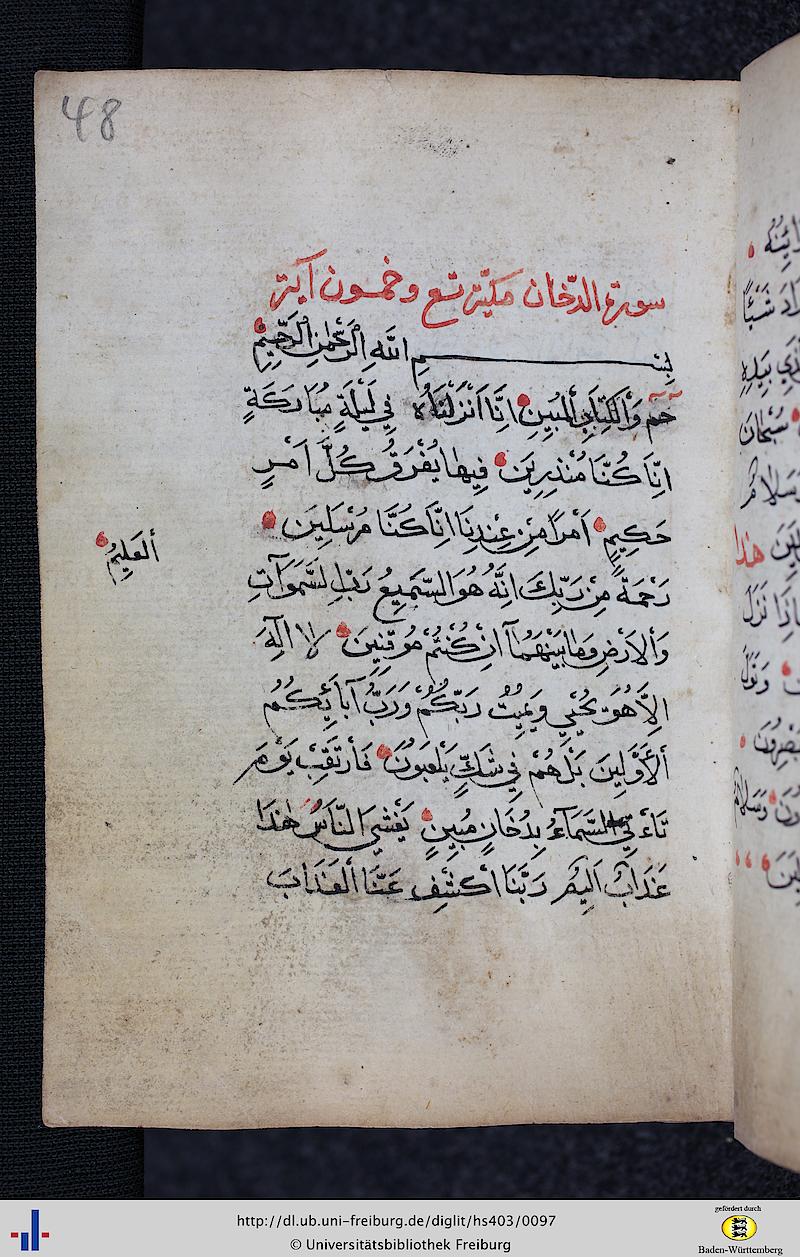 48
سورة الدّخان مكيّة تسع وخمسون آية
بِسْمِ اللهِ الرَّحْمٰنِ الرَّحِيمِ
حم وَالْكِتَابِ الْمُبِينِ اِنَّا اَنْزَلْنَاهُ فِي لَيْلَةٍ مُبَارَكَةٍ
اِنَّا كُنَّا مُنْذِرِينَ فِيهَا يُفْرَقُ كُلُّ اَمْرٍ
حَكِيمٍ اَمْراً مِنْ عِنْدِنَا اِنَّا كُنَّا مُرْسَلِينَ
رَحْمَةً مِنْ رَبِّكَ اِنَّهُ هُوَ السَّمِيعُ رَبِّ السَّمَوَاتِ
اَلْعَلِيمُ
وَالْاَرْضِ وَمَا بَيْنَهُمَآ اِنْ كُنْتُمْ مُوقِنِينَ لَا اِلٰهَ
اِلَّا هُوَ يُحْيِي وَيُمِيتُ رَبُّكُمْ وَرَبُّ آبَائِكُمُ
الْاَوَّلِينَ بَلْ هُمْ فِي شَكٍّ يَلْعَبُونَ فَارْتَقِبْ يَوْمَ
تَاْتِي السَّمَآءُ بِدُخَانٍ مُبِينٍ يَغْشَى النَّاسَ هٰذَا
عَذَابٌ اَلِيمٌ رَبَّنَا اكْشِفْ عَنَّا الْعَذَابَ
http://dl.ub.uni-freiburg.de/diglit/hs403/0097
© Universitätsbibliothek Freiburg
gefördert durch
Baden-Württemberg